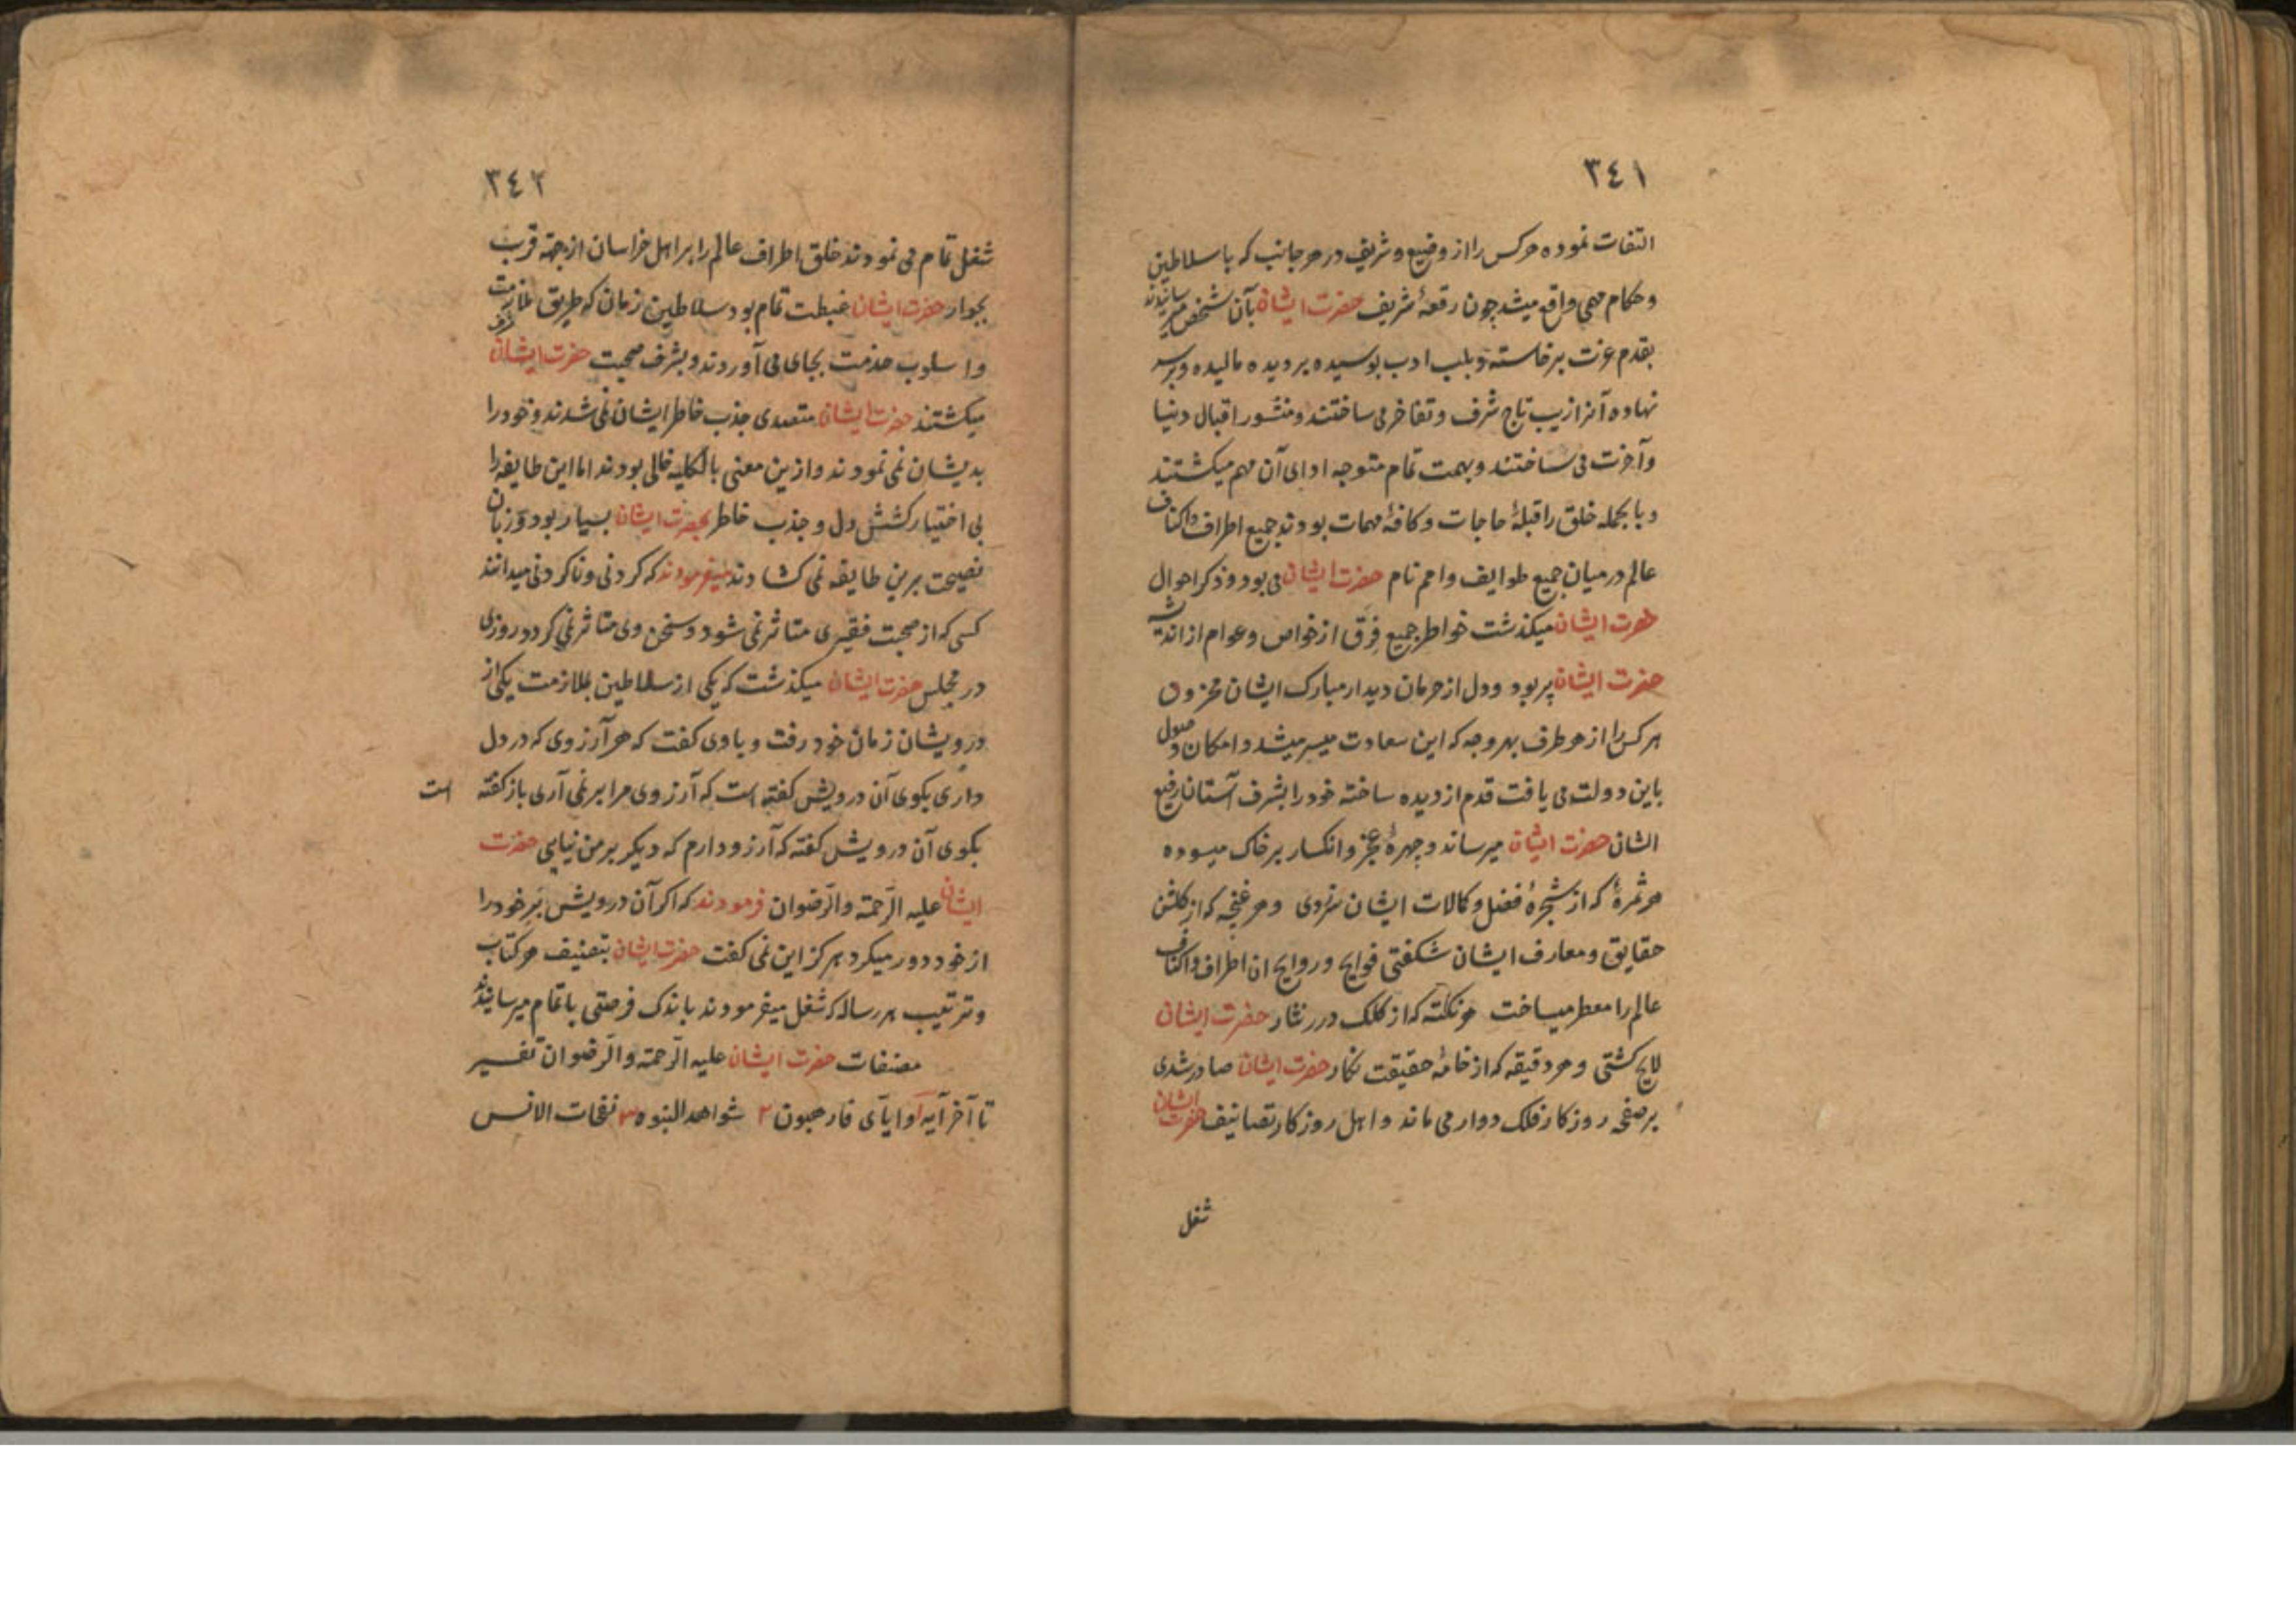 ٣٤١
التفات نموده هرکس را از وضیع و شریف در هر جانب که با سلاطین
و حکام مهمی واقع میشد چون رقعهٔ شریف حضرت ایشان بآن شخص میرسانیدند
بقدم عزت برخاسته و بلب ادب بوسیده بر دیده مالیده و بر سر
نهاده آنرا زیب تاج شرف و تفاخر می ساختند و منشور اقبال دنیا
و آخرت می ساختند و بهمت تمام متوجه ادای آن مهم میکشتند
و بالجمله خلق را قبلهٔ حاجات و کافهٔ مهمات بودند جمیع اطراف و اکناف
عالم در میان جمیع طوایف و امم نام حضرت ایشان می بود و ذکر احوال
حضرت ایشان میکذشت خواطر جمیع فِرَق از خواص و عوام از اندیشه
حضرت ایشان پر بود و دل از حرمان دیدار مبارک ایشان محزون
هر کس را از هر طرف بهر وجه که این سعادت میسر میشد و امکان وصول
باین دولت می یافت قدم از دیده ساخته خود را بشرف آستان رفیع
الشان حضرت ایشان میرساند و چهرهٔ عجز و انکسار بر خاک میسوده
هر ثمرهٔ که از شجرهٔ فضل و کمالات ایشان سر زدی و هر غنچه که از کلشن
حقایق و معارف ایشان شکفتی فوایح و روایح ان اطراف و اکناف
عالم را معطر میساخت هر نکته که از کلک درر نثار حضرت ایشان
لایح کشتی و هر دقیقه که از خامهٔ حقیقت نکار حضرت ایشان صادر شدی
بر صفحه روزکار فلک دوار می ماند و اهل روزکار بتصانیف حضرت ایشان
شغل
٣٤٢
شغل تمام می نمودند خلق اطراف عالم را بر اهل خراسان از جهة قرب
بجوار حضرت ایشان غبطت تمام بود سلاطین زمان که طریق ملازمت
و اسلوب خدمت بجای می آوردند و بشرف صحبت حضرت ایشان مشرف
میکشتند حضرت ایشان متصدی جذب خاطر ایشان نمی شدند و خود را
بدیشان نمی نمودند و ازین معنی بالکلیه خالی بودند اما این طایفه را
بی اختیار کشش دل و جذب خاطر بحضرت ایشان بسیار بود و زبان
نصیحت برین طایفه نمی کشادند میفرمودند که کردنی و ناکردنی میدانند
کسی که از صحبت فقیری متاثر نمی شود و سخن وی متاثر نمی کردد روزی
در مجلس حضرت ایشان میکذشت که یکی از سلاطین بملازمت یکی از
درویشان زمان خود رفت و با وی کفت که هر آرزوی که در دل
داری بکوی آن درویش کفته است که آرزوی مرا بر نمی آری باز کفته است
بکوی آن درویش کفته که آرزو دارم که دیکر بر من نیایی حضرت
ایشان علیه الرّحمة والرّضوان فرمودند که اکر آن درویش بَرِ خود را
از خود دور میکرد هر کز این نمی کفت حضرت ایشان بتصنیف هر کتاب
و ترتیب هر رساله که شغل میفرمودند باندک فرصتی باتمام میرسانیدند
مصنفات حضرت ایشان علیه الرّحمة والرّضوان تفسیر
تا آخر آیه و ایای فارهبون ٢ شواهد النبوه ٣ نفحات الانس